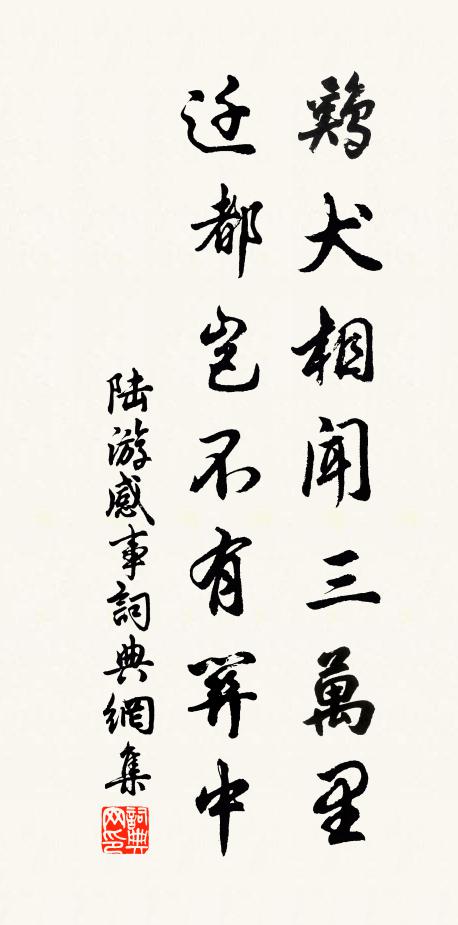 鷄犬相聞三萬里
迁都豈不有關中
陸游感事詞典網集
詞典网印